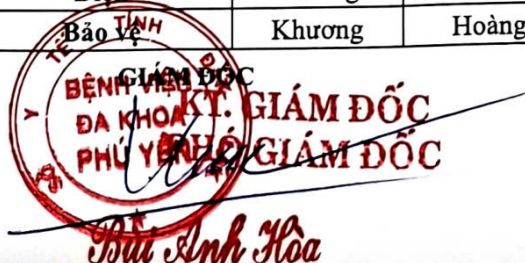 Bảo vệ Khương Hoàng
GIÁM ĐỐC
KT. GIÁM ĐỐC
PHÓ GIÁM ĐỐC
Y TẾ TỈNH
BỆNH VIỆN
ĐA KHOA
PHÚ YÊN
Bùi Anh Hòa